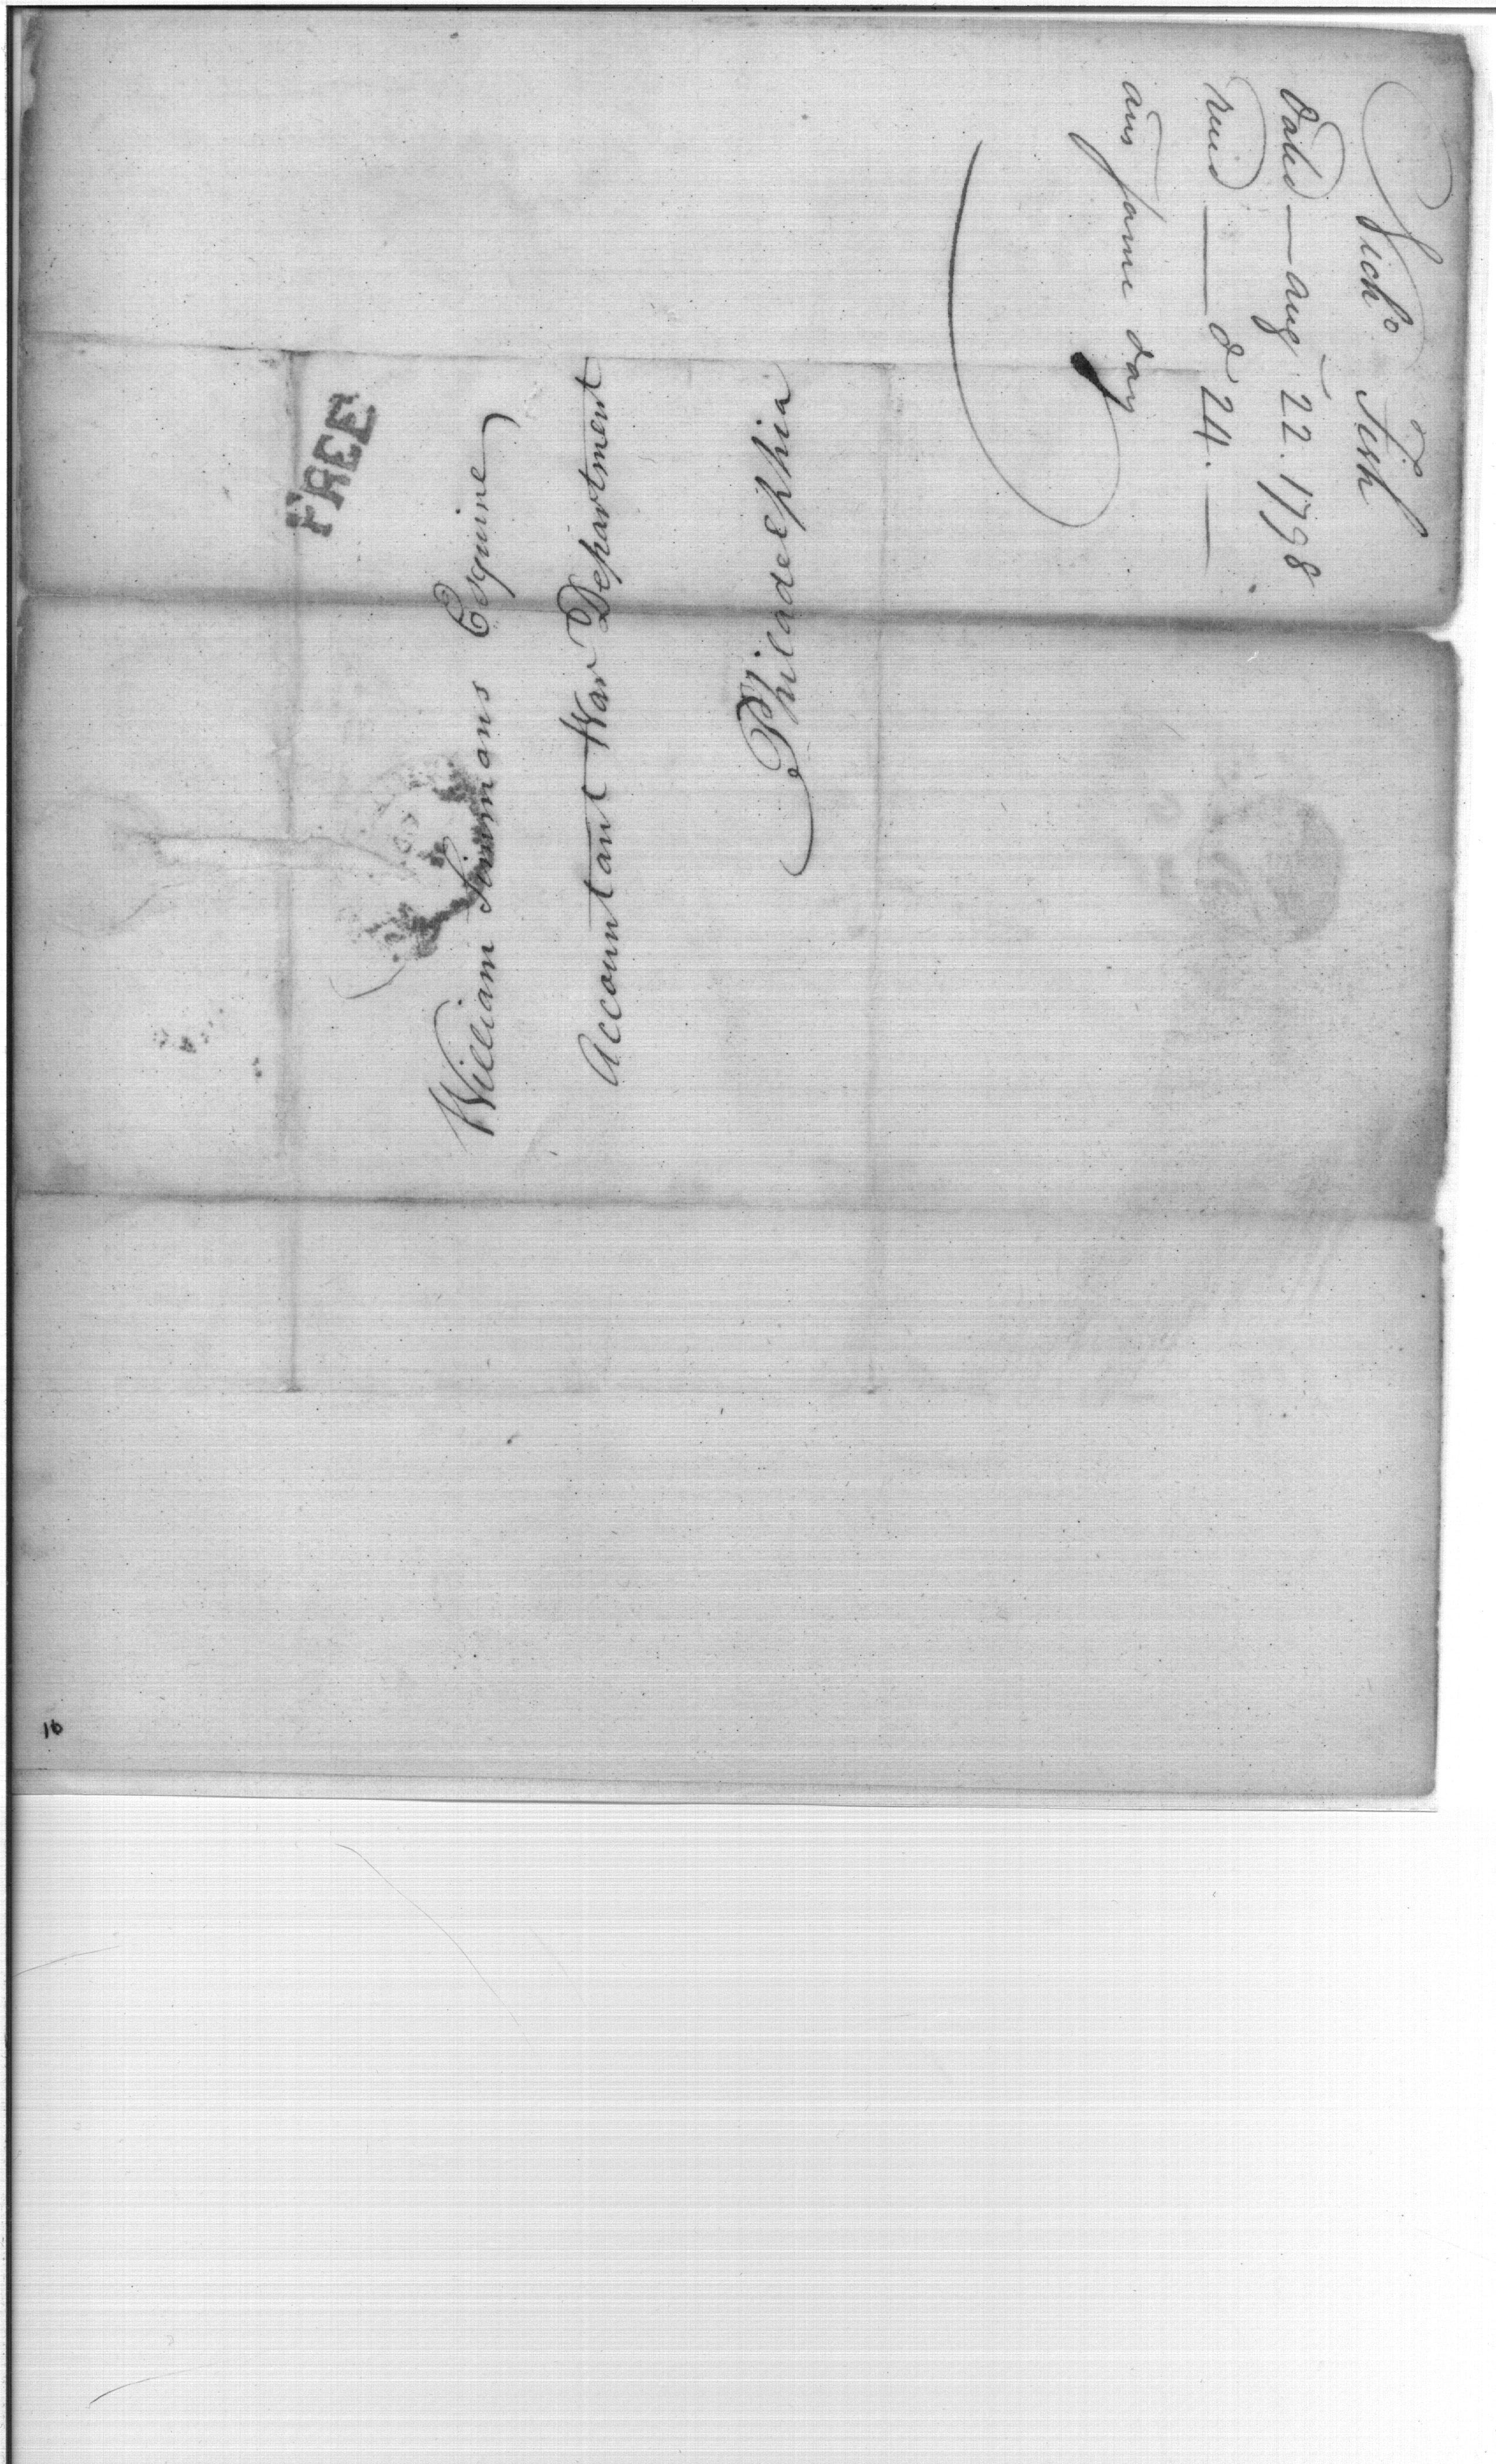 Nich.o Fish
Dated — Aug 22. 1798
recd — do 24. —
ans same day
FREE
William Simmons Esquire
Accountant War Department
Philadelphia
16